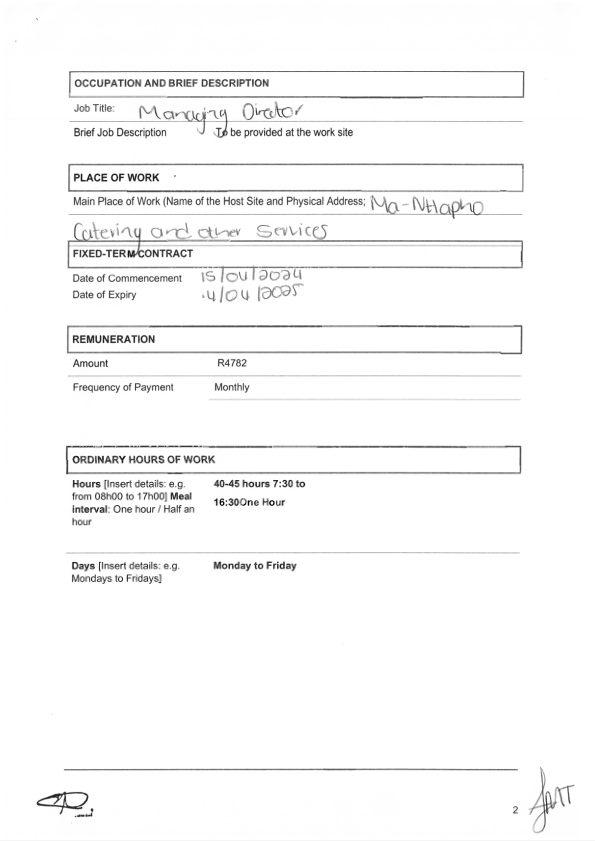 OCCUPATION AND BRIEF DESCRIPTION
Job Title: Managing Director
Brief Job Description To be provided at the work site
PLACE OF WORK
Main Place of Work (Name of the Host Site and Physical Address; Ma-NtHapho
Catering and other Services
FIXED-TERM CONTRACT
Date of Commencement 15/04/2024
Date of Expiry 14/04/2025
REMUNERATION
Amount R4782
Frequency of Payment Monthly
ORDINARY HOURS OF WORK
Hours [Insert details: e.g. 40-45 hours 7:30 to
from 08h00 to 17h00] Meal 16:30One Hour
interval: One hour / Half an
hour
Days [Insert details: e.g. Monday to Friday
Mondays to Fridays]
2